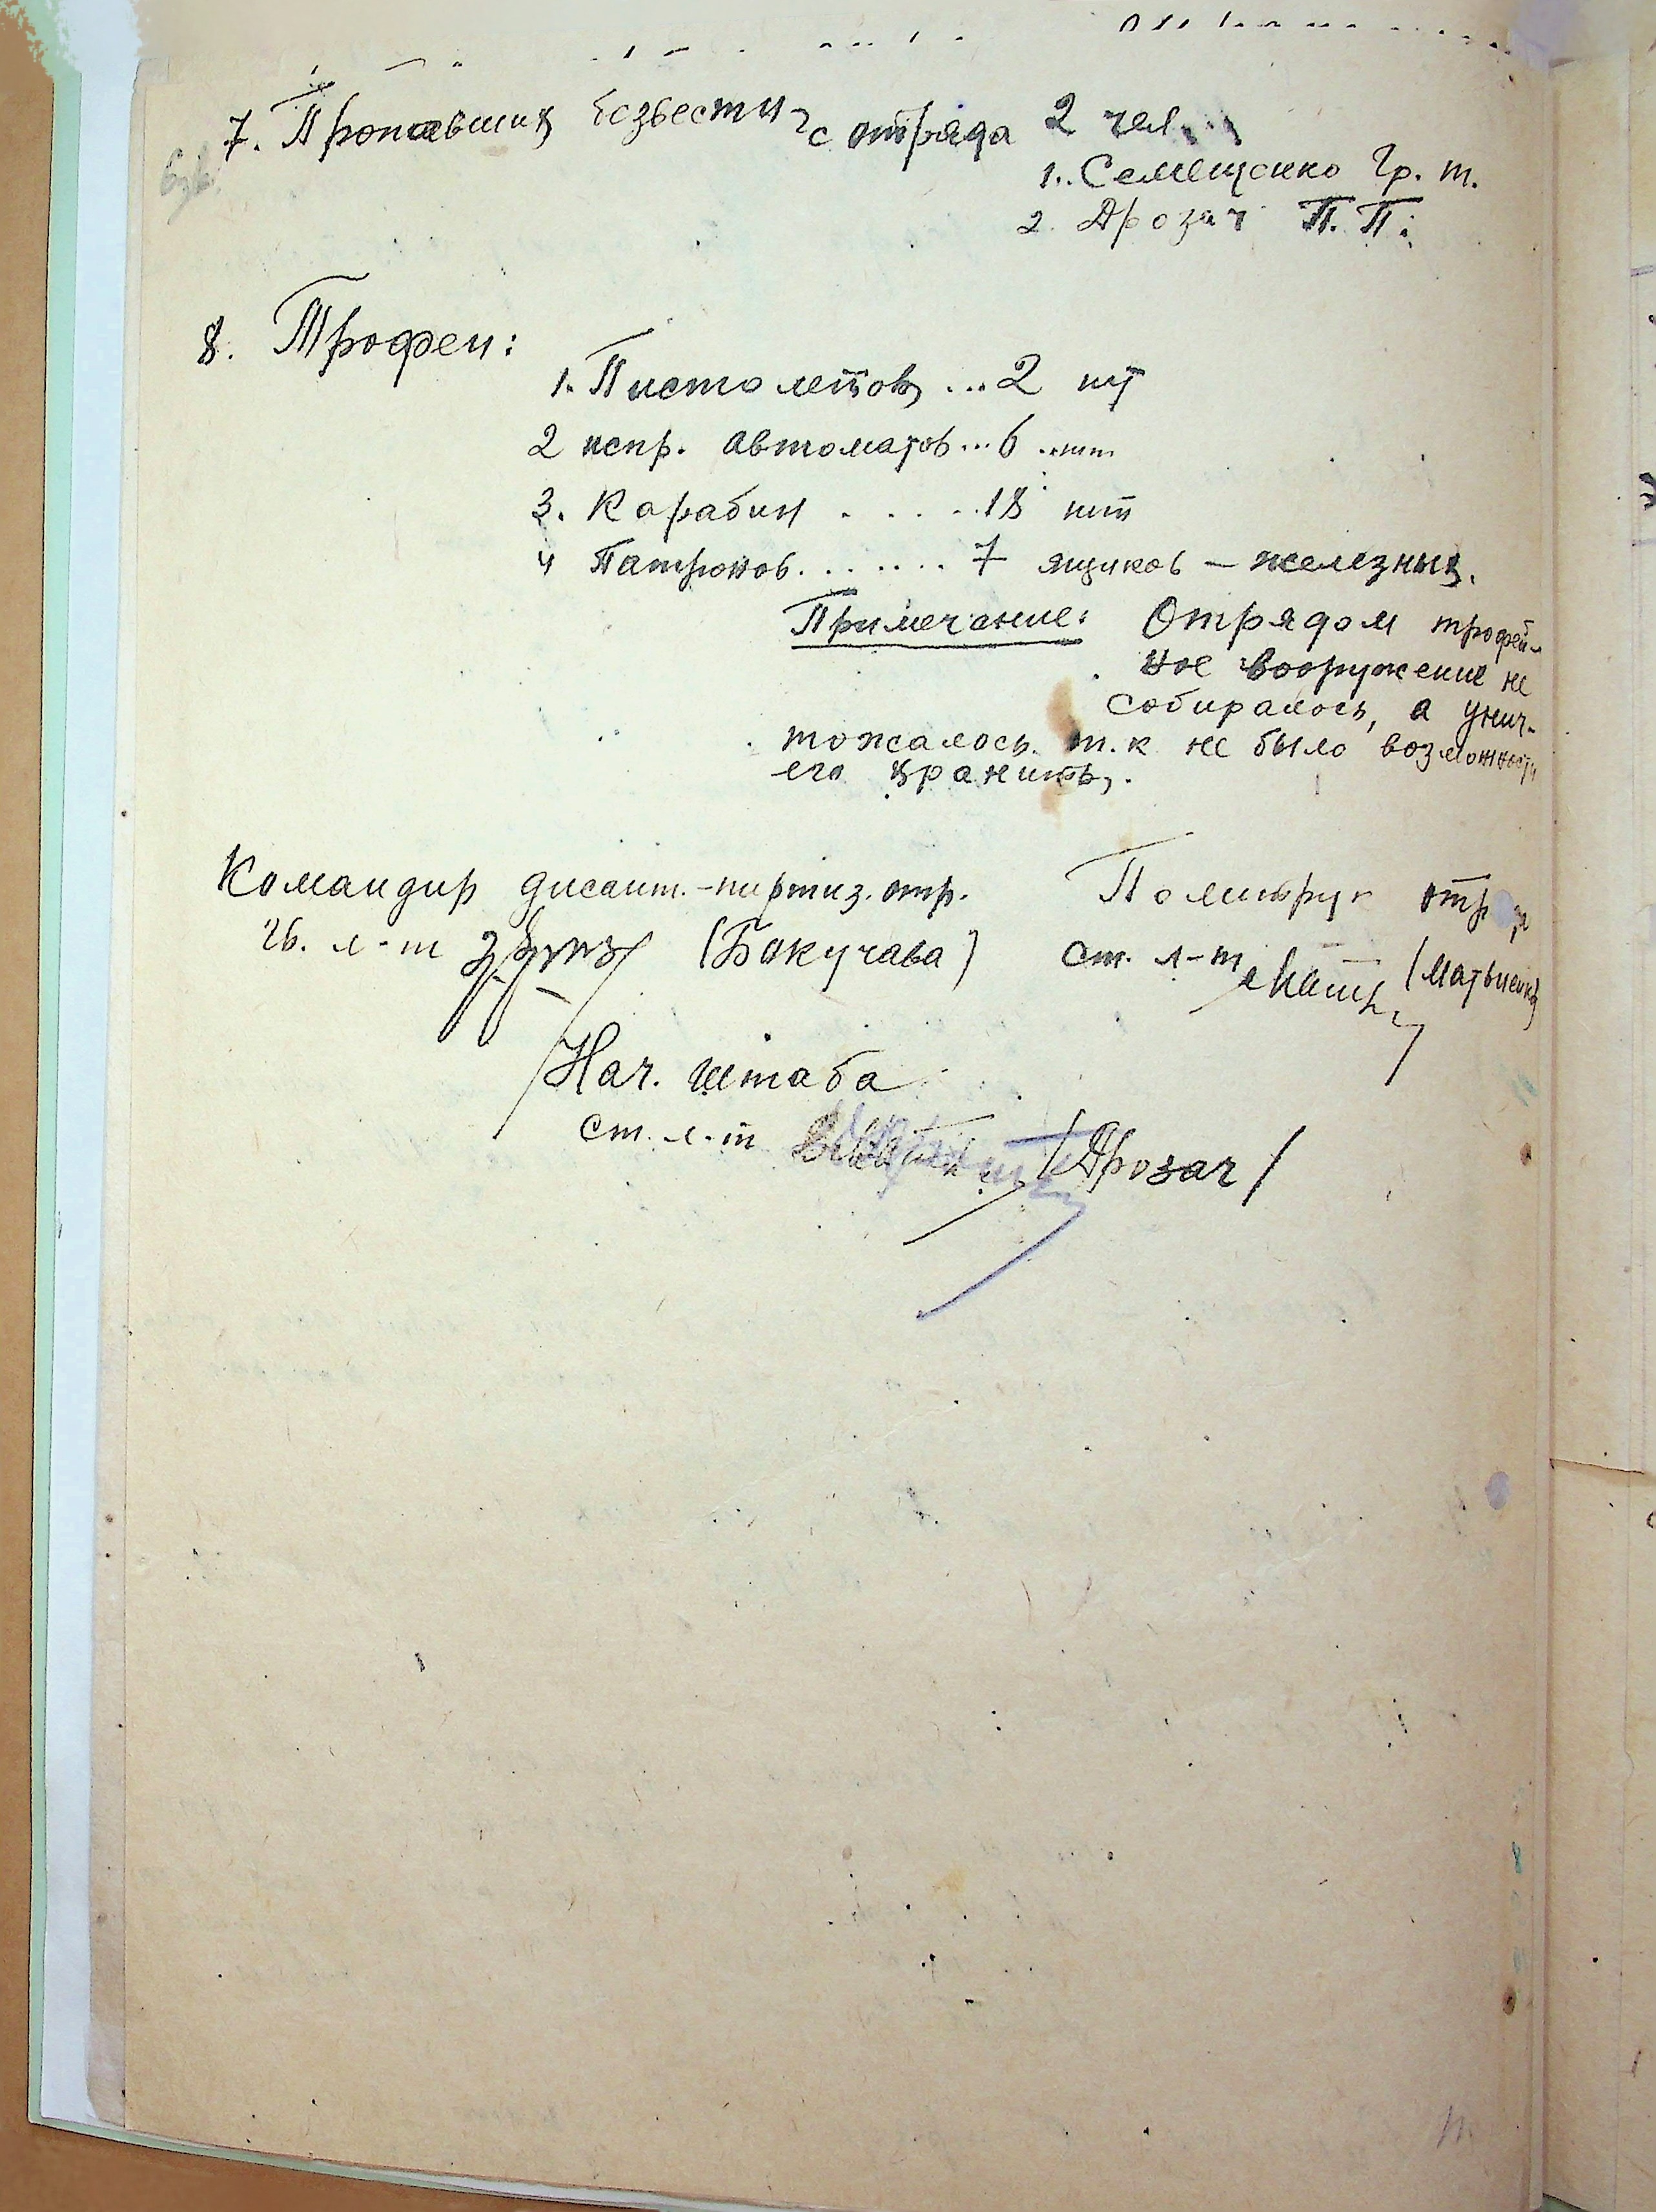 7. Пропавших безвести с отряда 2 чел.
1. Семещенко Гр. т.
2. Дрозач П. П.
8. Трофеи:
1. Пистолетов ... 2 шт
2 испр. автоматов ... 6 шт
3. Карабин . . . . . 18 шт
4 Патронов . . . . . . . 7 ящиков – железных.
Примечание: Отрядом трофей-
ное вооружение не
собиралось, а унич-
тожалось. т.к не было возможности
его хранить.
Командир дисант.-партиз. отр. Политрук отр
л-т (Бакучава) ст. л-т (Матвиенко)
Нач. штаба
ст. л-т /Дрозач/